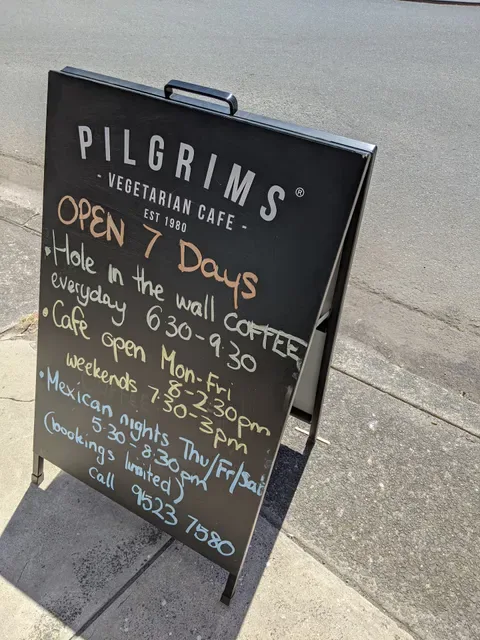 PILGRIMS®
- VEGETARIAN CAFE -
EST 1980
OPEN 7 Days
• Hole in the wall COFFEE
everyday 6:30-9:30
• Cafe open Mon-Fri
8-2:30pm
weekends 7:30-3pm
• Mexican nights Thu/Fri/Sat
5:30-8:30pm
(bookings limited)
Call 9523 7580